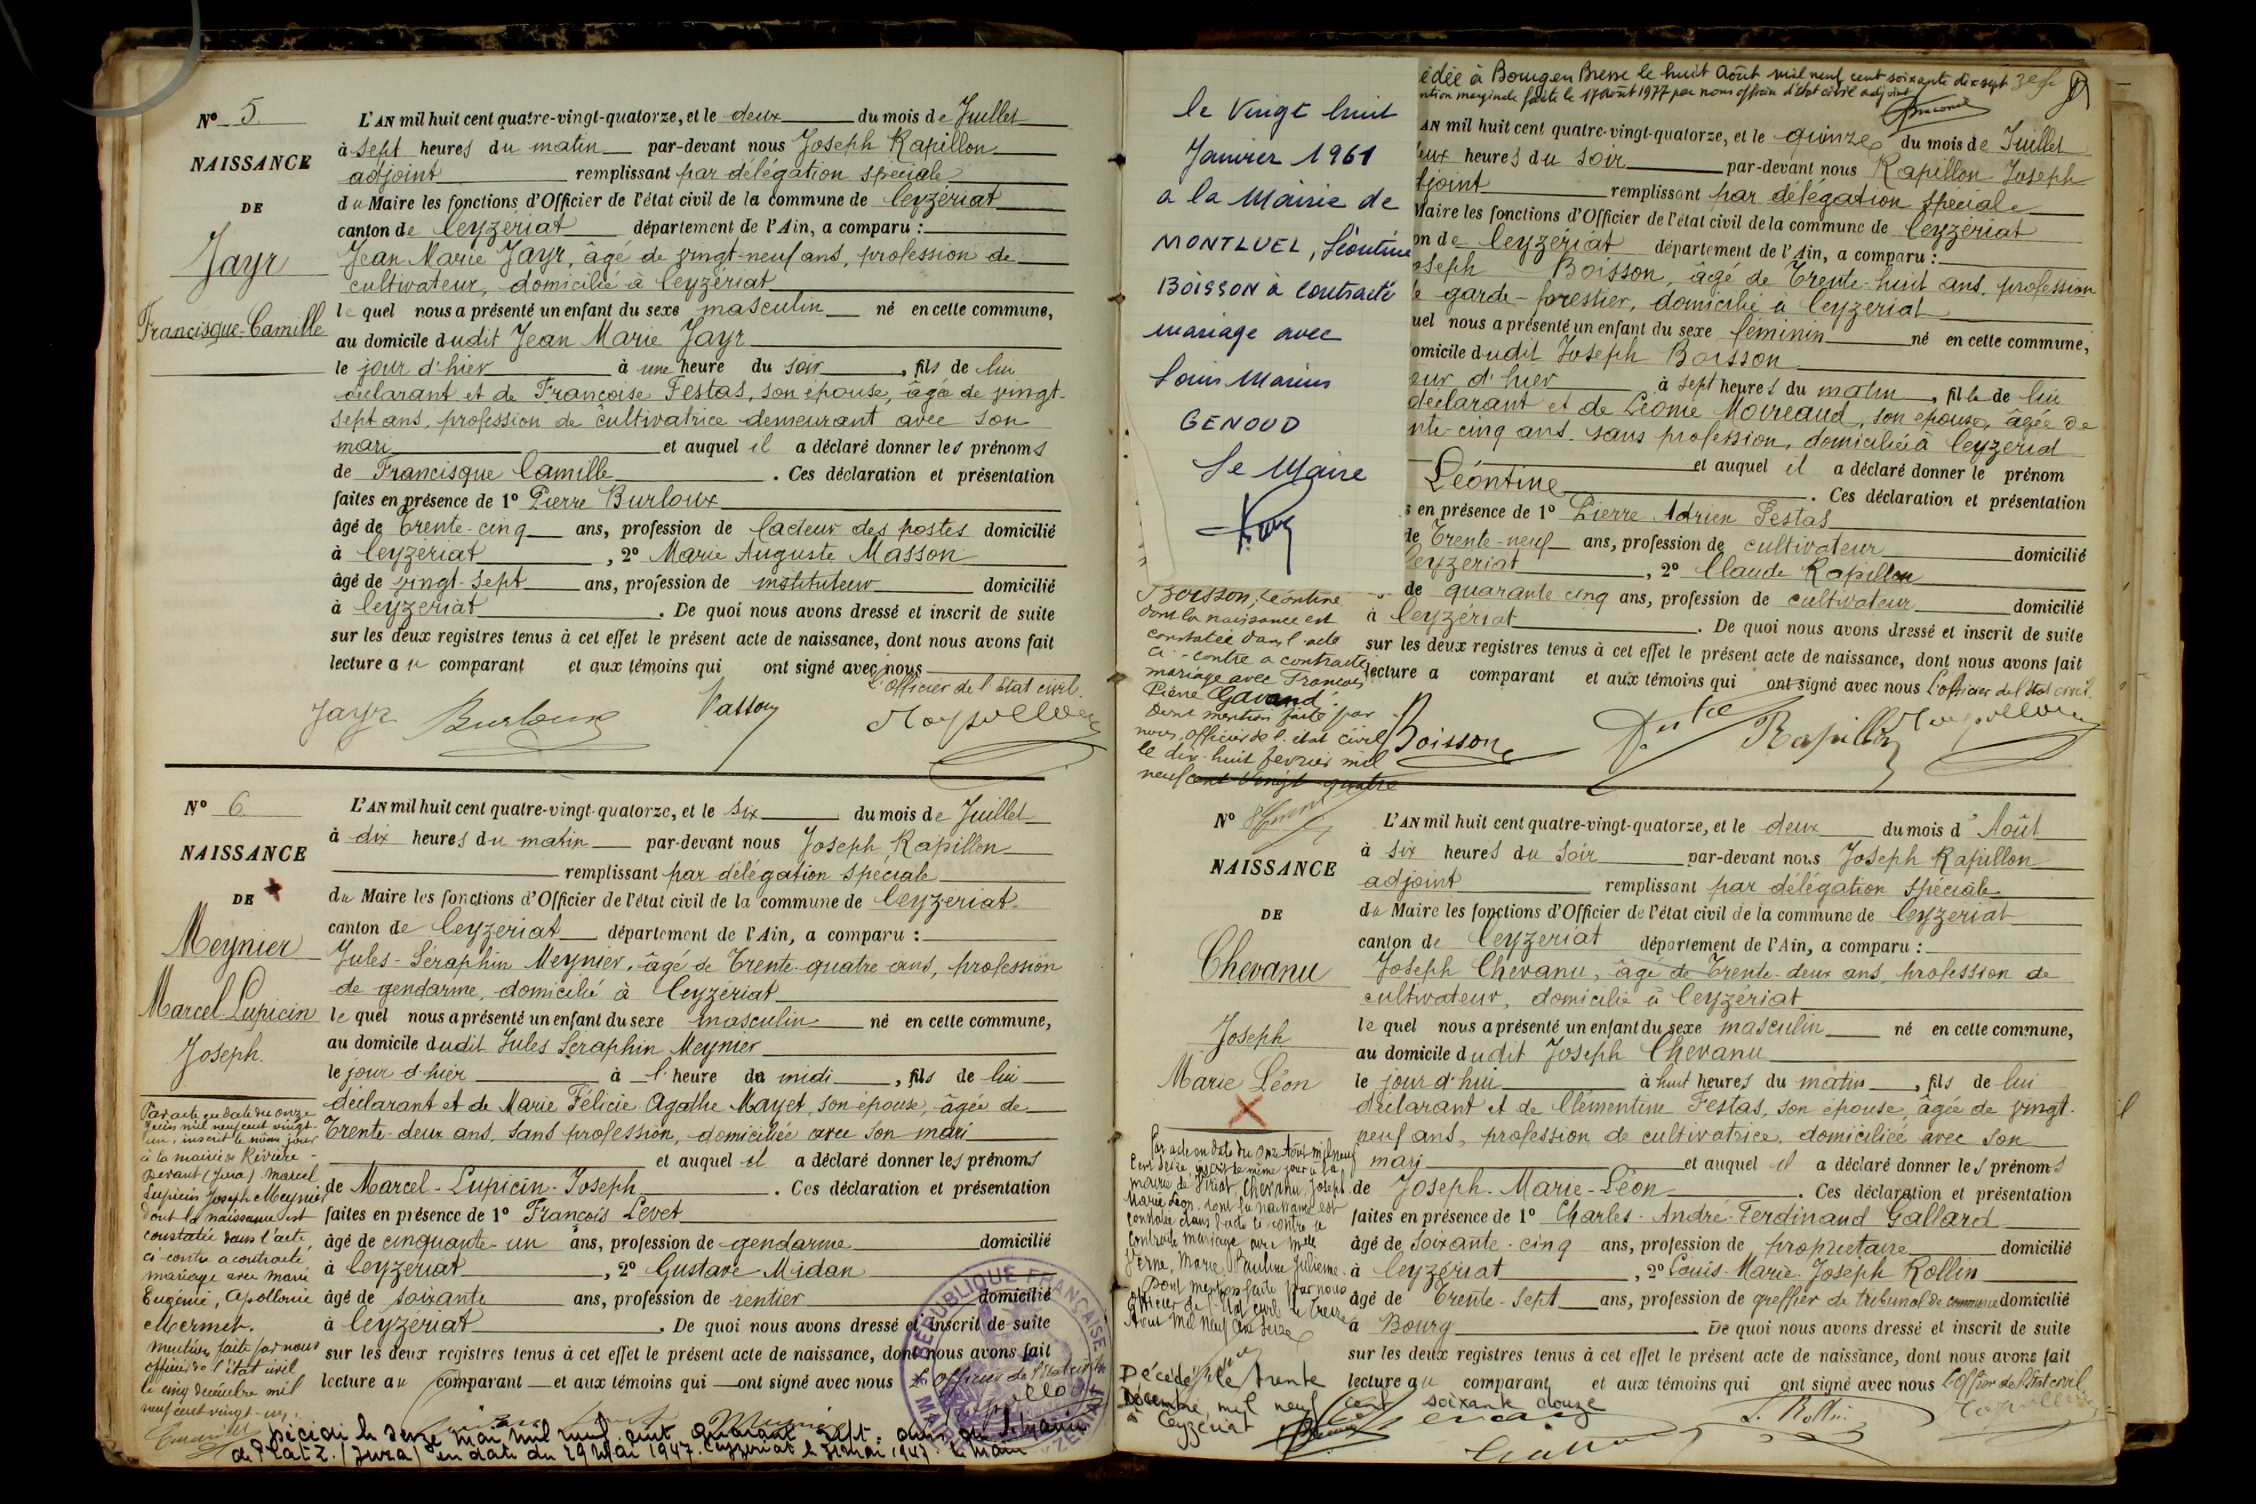 N° 5
NAISSANCE
DE
Jayr
Francisque-Camille
L'AN mil huit cent quatre-vingt-quatorze, et le deux du mois de Juillet
à sept heures du matin par-devant nous Joseph Rapillon
adjoint remplissant par délégation spéciale
du Maire les fonctions d'Officier de l'état civil de la commune de Ceyzériat
canton de Ceyzériat département de l'Ain, a comparu :
Jean Marie Jayr, âgé de vingt-neuf ans, profession de
cultivateur, domicilié à Ceyzériat
lequel nous a présenté un enfant du sexe masculin né en cette commune,
au domicile dudit Jean Marie Jayr
le jour d'hier à une heure du soir, fils de lui
déclarant et de Françoise Festas, son épouse, âgée de vingt-
sept ans, profession de cultivatrice demeurant avec son
mari et auquel il a déclaré donner les prénoms
de Francisque Camille. Ces déclaration et présentation
faites en présence de 1° Pierre Burloux
âgé de Trente-cinq ans, profession de facteur des postes domicilié
à Ceyzériat, 2° Marie Auguste Masson
âgé de vingt-sept ans, profession de instituteur domicilié
à Ceyzériat. De quoi nous avons dressé et inscrit de suite
sur les deux registres tenus à cet effet le présent acte de naissance, dont nous avons fait
lecture au comparant et aux témoins qui ont signé avec nous
L'officier de l'état civil.
Jayr Burloux Masson Rapillon
N° 6
NAISSANCE
DE
Meynier
Marcel Lupicin
Joseph
L'AN mil huit cent quatre-vingt-quatorze, et le six du mois de Juillet
à dix heures du matin par-devant nous Joseph Rapillon
remplissant par délégation spéciale
du Maire les fonctions d'Officier de l'état civil de la commune de Ceyzériat
canton de Ceyzériat département de l'Ain, a comparu :
Jules-Séraphin Meynier, âgé de Trente-quatre ans, profession
de gendarme, domicilié à Ceyzériat
lequel nous a présenté un enfant du sexe masculin né en cette commune,
au domicile dudit Jules Séraphin Meynier
le jour d'hier à l'heure de midi, fils de lui
déclarant et de Marie Félicie Agathe Mayet, son épouse, âgée de
Trente-deux ans, sans profession, domiciliée avec son mari
et auquel il a déclaré donner les prénoms
de Marcel-Lupicin-Joseph. Ces déclaration et présentation
faites en présence de 1° François Levet
âgé de cinquante-un ans, profession de gendarme domicilié
à Ceyzériat, 2° Gustave Midan
âgé de soixante ans, profession de rentier domicilié
à Ceyzériat. De quoi nous avons dressé et inscrit de suite
sur les deux registres tenus à cet effet le présent acte de naissance, dont nous avons fait
lecture au comparant et aux témoins qui ont signé avec nous L'officier de l'état civil
Par acte en date du onze
juin mil neuf cent vingt-
un, inscrit le même jour
à la mairie de Rivière-
Devant (Jura) Marcel
Lupicin Joseph Meynier
dont la naissance est
constatée dans l'acte
ci-contre a contracté
mariage avec Marie
Eugénie, Apollonie
Mermet.
Mention faite par nous
officier de l'état civil
le cinq décembre mil
neuf cent vingt-un.
Décédé le seize mai mil neuf cent quarante sept
(Jura) en date du 29 Mai 1947. Ceyzériat le 31 mai 1947. Le Maire
RÉPUBLIQUE FRANÇAISE
le Vingt huit
Janvier 1961
a la Mairie de
MONTLUEL, Léontine
BOISSON à contracté
mariage avec
Louis Marius
GENOUD
Le Maire
Boisson, Léontine
dont la naissance est
constatée dans l'acte
ci-contre a contracté
mariage avec François
Pierre Gavand.
Dont mention faite par
nous, officier de l'état civil
le dix-huit février mil
neuf cent vingt-quatre
édée à Bourg en Bresse le huit Août mil neuf cent soixante dix sept
ntion marginale faite le 17 août 1977 par nous officier d'état civil adjoint
AN mil huit cent quatre-vingt-quatorze, et le quinze du mois de Juillet
eux heures du soir par-devant nous Rapillon Joseph
djoint remplissant par délégation spéciale
Maire les fonctions d'Officier de l'état civil de la commune de Ceyzériat
on de Ceyzériat département de l'Ain, a comparu :
oseph Boisson, âgé de Trente-huit ans, profession
de garde-forestier, domicilié à Ceyzériat
uel nous a présenté un enfant du sexe féminin né en cette commune,
omicile dudit Joseph Boisson
our d'hier à sept heures du matin, fille de lui
déclarant et de Léonie Moireaud, son épouse, âgée de
nte-cinq ans, sans profession, domiciliée à Ceyzériat
et auquel il a déclaré donner le prénom
Léontine. Ces déclaration et présentation
s en présence de 1° Pierre Adrien Festas
de Trente-neuf ans, profession de cultivateur domicilié
Ceyzériat, 2° Claude Rapillon
de quarante-cinq ans, profession de cultivateur domicilié
à Ceyzériat. De quoi nous avons dressé et inscrit de suite
sur les deux registres tenus à cet effet le présent acte de naissance, dont nous avons fait
lecture a comparant et aux témoins qui ont signé avec nous L'officier de l'état civil.
Boisson Rapillon
N°
NAISSANCE
DE
Chevanu
Joseph
Marie Léon
L'AN mil huit cent quatre-vingt-quatorze, et le deux du mois d'Août
à six heures du soir par-devant nous Joseph Rapillon
adjoint remplissant par délégation spéciale
du Maire les fonctions d'Officier de l'état civil de la commune de Ceyzériat
canton de Ceyzériat département de l'Ain, a comparu :
Joseph Chevanu, âgé de Trente-deux ans, profession de
cultivateur, domicilié à Ceyzériat
lequel nous a présenté un enfant du sexe masculin né en cette commune,
au domicile dudit Joseph Chevanu
le jour d'hui à huit heures du matin, fils de lui
déclarant et de Clémentine Festas, son épouse, âgée de vingt-
neuf ans, profession de cultivatrice, domiciliée avec son
mari et auquel il a déclaré donner les prénoms
de Joseph-Marie-Léon. Ces déclaration et présentation
faites en présence de 1° Charles-André-Ferdinand Gallard
âgé de soixante-cinq ans, profession de propriétaire domicilié
à Ceyzériat, 2° Louis-Marie-Joseph Rollin
âgé de Trente-sept ans, profession de greffier de tribunal de commerce domicilié
à Bourg. De quoi nous avons dressé et inscrit de suite
sur les deux registres tenus à cet effet le présent acte de naissance, dont nous avons fait
lecture au comparant et aux témoins qui ont signé avec nous L'officier de l'état civil
Par acte en date du onze Août mil neuf
cent seize, inscrit le même jour à la
mairie de Viriat, Chevanu, Joseph
Marie Léon, dont la naissance est
constatée dans l'acte ci-contre a
contracté mariage avec Melle
Verne, Marie, Pauline Julienne.
Dont mention faite par nous
officier de l'état civil le treize
Août mil neuf cent seize
Décédé le trente
Décembre mil neuf cent soixante douze
à Ceyzériat
L. Rollin